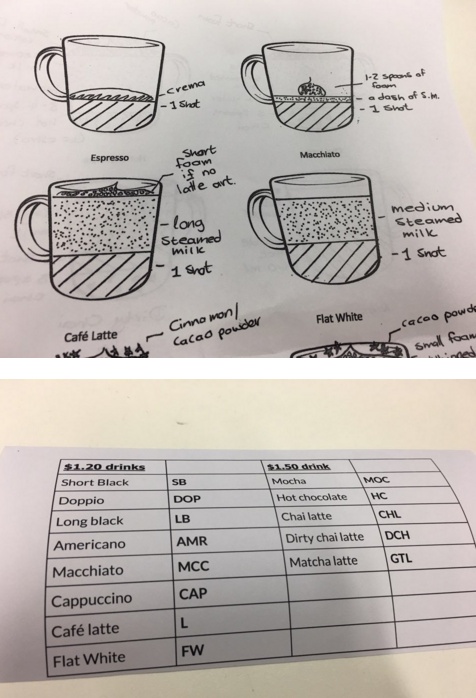 crema
1 Shot
1-2 spoons of
foam
a dash of S.M.
1 Shot
Espresso
Macchiato
Short
foam
if no
latte art.
long
Steamed
milk
1 Shot
medium
Steamed
milk
1 Shot
Café Latte
Flat White
Cinnamon/
Cacao powder
cacao powd
small foam
$1.20 drinks $1.50 drink
Short Black SB Mocha MOC
Doppio DOP Hot chocolate HC
Long black LB Chai latte CHL
Americano AMR Dirty chai latte DCH
Macchiato MCC Matcha latte GTL
Cappuccino CAP
Café latte L
Flat White FW